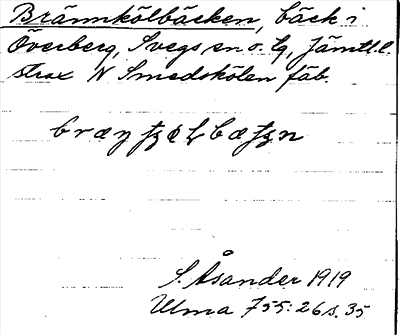 Brännkölbäcken, bäck i
Överberg, Svegs sn o. tg, Jämtl. l.
strax N Smedskölen fäb.
S. Åsander 1919
Ulma 755:26 s. 35